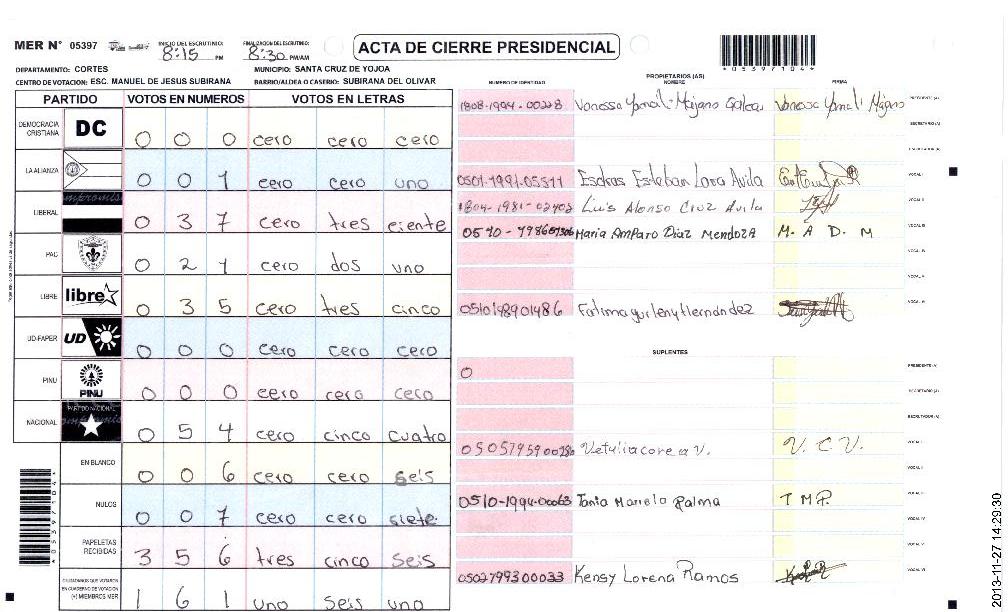 MER N° 05397 INICIO DEL ESCRUTINIO: 8:15 PM FINALIZACION DEL ESCRUTINIO: 8:30 PM/AM
ACTA DE CIERRE PRESIDENCIAL
*05397104*
DEPARTAMENTO: CORTES MUNICIPIO: SANTA CRUZ DE YOJOA
CENTRO DE VOTACION: ESC. MANUEL DE JESUS SUBIRANA BARRIO/ALDEA O CASERIO: SUBIRANA DEL OLIVAR
PARTIDO VOTOS EN NUMEROS VOTOS EN LETRAS
DEMOCRACIA CRISTIANA DC 0 0 0 cero cero cero
LA ALIANZA 0 0 1 cero cero uno
LIBERAL 0 3 7 cero tres ciente
PAC 0 2 1 cero dos uno
LIBRE libre 0 3 5 cero tres cinco
UD-FAPER UD 0 0 0 cero cero cero
PINU PINU 0 0 0 cero cero cero
NACIONAL PARTIDO NACIONAL 0 5 4 cero cinco cuatro
EN BLANCO 0 0 6 cero cero seis
NULOS 0 0 7 cero cero siete
PAPELETAS RECIBIDAS 3 5 6 tres cinco seis
CIUDADANOS QUE VOTARON EN CUADERNO DE VOTACION (+) MIEMBROS MER 1 6 1 uno seis uno
*05397104*
PROPIETARIOS (AS)
NUMERO DE IDENTIDAD NOMBRE FIRMA
1808-1994-00228 Vanessa Yamali Majano Galeas Vanessa Yamali Majano PRESIDENTE (A)
SECRETARIO (A)
ESCRUTADOR (A)
0501-1991-05511 Esdras Esteban Lara Avila VOCAL I
1804-1981-02402 Luis Alonso Cruz Avila VOCAL II
0510- Maria Amparo Diaz Mendoza M. A D. M VOCAL III
VOCAL IV
VOCAL V
0510198901486 Fatima yurleny Hernandez VOCAL VI
SUPLENTES
0 PRESIDENTE (A)
SECRETARIO (A)
ESCRUTADOR (A)
V. C. V. VOCAL I
VOCAL II
0510-1994-00063 Tania Mariela Palma T M P. VOCAL III
VOCAL IV
VOCAL V
0502799300033 Kensy Lorena Ramos VOCAL VI
2013-11-27 14:29:30